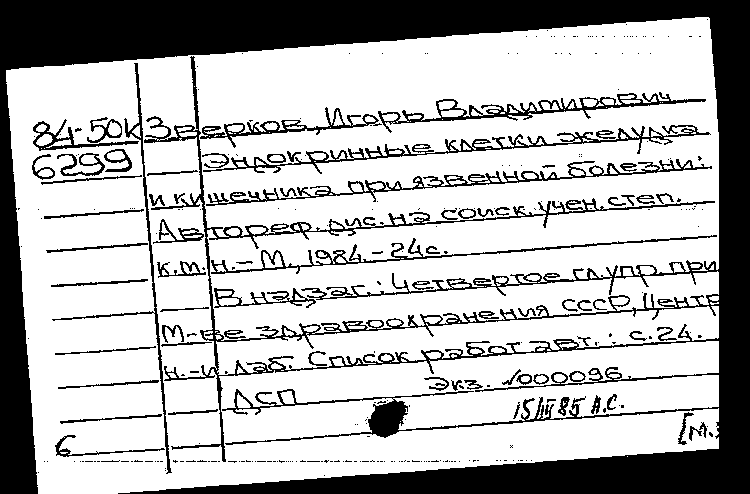 84-50К Зверков, Игорь Владимирович
6299 Эндокринные клетки желудка
и кишечника при язвенной болезни:
Автореф. дис. на соиск. учен. степ.
к.м.н. - М., 1984. - 24с.
В надзаг.: Четвертое гл. упр. при
М-ве здравоохранения СССР, Центр
н.-и. лаб. Список работ авт.: с.24.
ДСП Экз. №000096.
15/III 85 А.С.
6
[М.